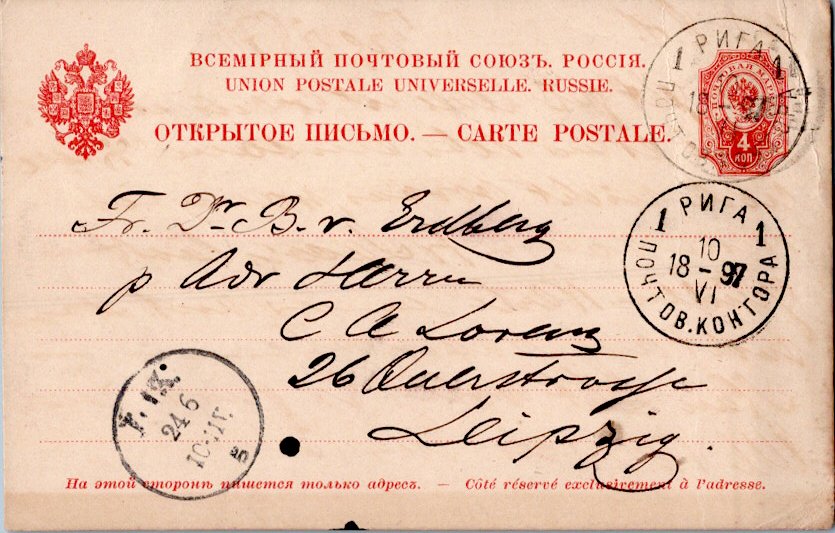 ВСЕМІРНЫЙ ПОЧТОВЫЙ СОЮЗЪ. РОССІЯ.
UNION POSTALE UNIVERSELLE. RUSSIE.
ОТКРЫТОЕ ПИСЬМО. — CARTE POSTALE.
ПОЧТОВАЯ МАРКА
4
КОП
1 РИГА 1
18 –
1 РИГА 1
10
18 – 97
VI
ПОЧТОВ. КОНТОРА
Fr. Dr B. v. Erdberg
p Adr Herrn
C A Lorenz
26 Querstrasse
Leipzig.
24 6
На этой сторонѣ пишется только адресъ. — Côté réservé exclusivement à l'adresse.